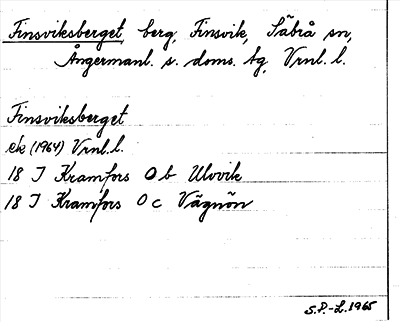 Finsviksberget, berg, Finsvik, Säbrå sn,
Ångermanl. s. doms. tg, Vrnl. l.
Finsviksberget
ek (1964) Vrnl. l.
18 J Kramfors 0 b Ulvvik
18 J Kramfors 0 c Vägnön
S.P.-L. 1965